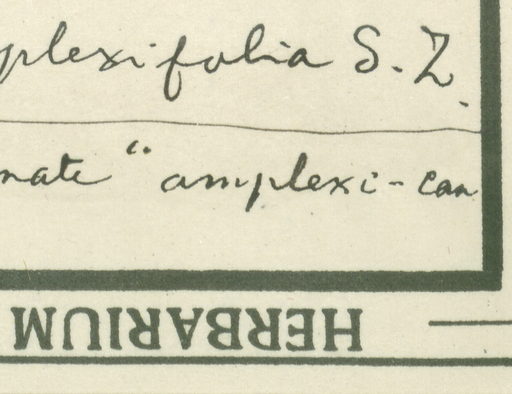 plexifolia S. Z.
nate " amplexi-can
HERBARIUM